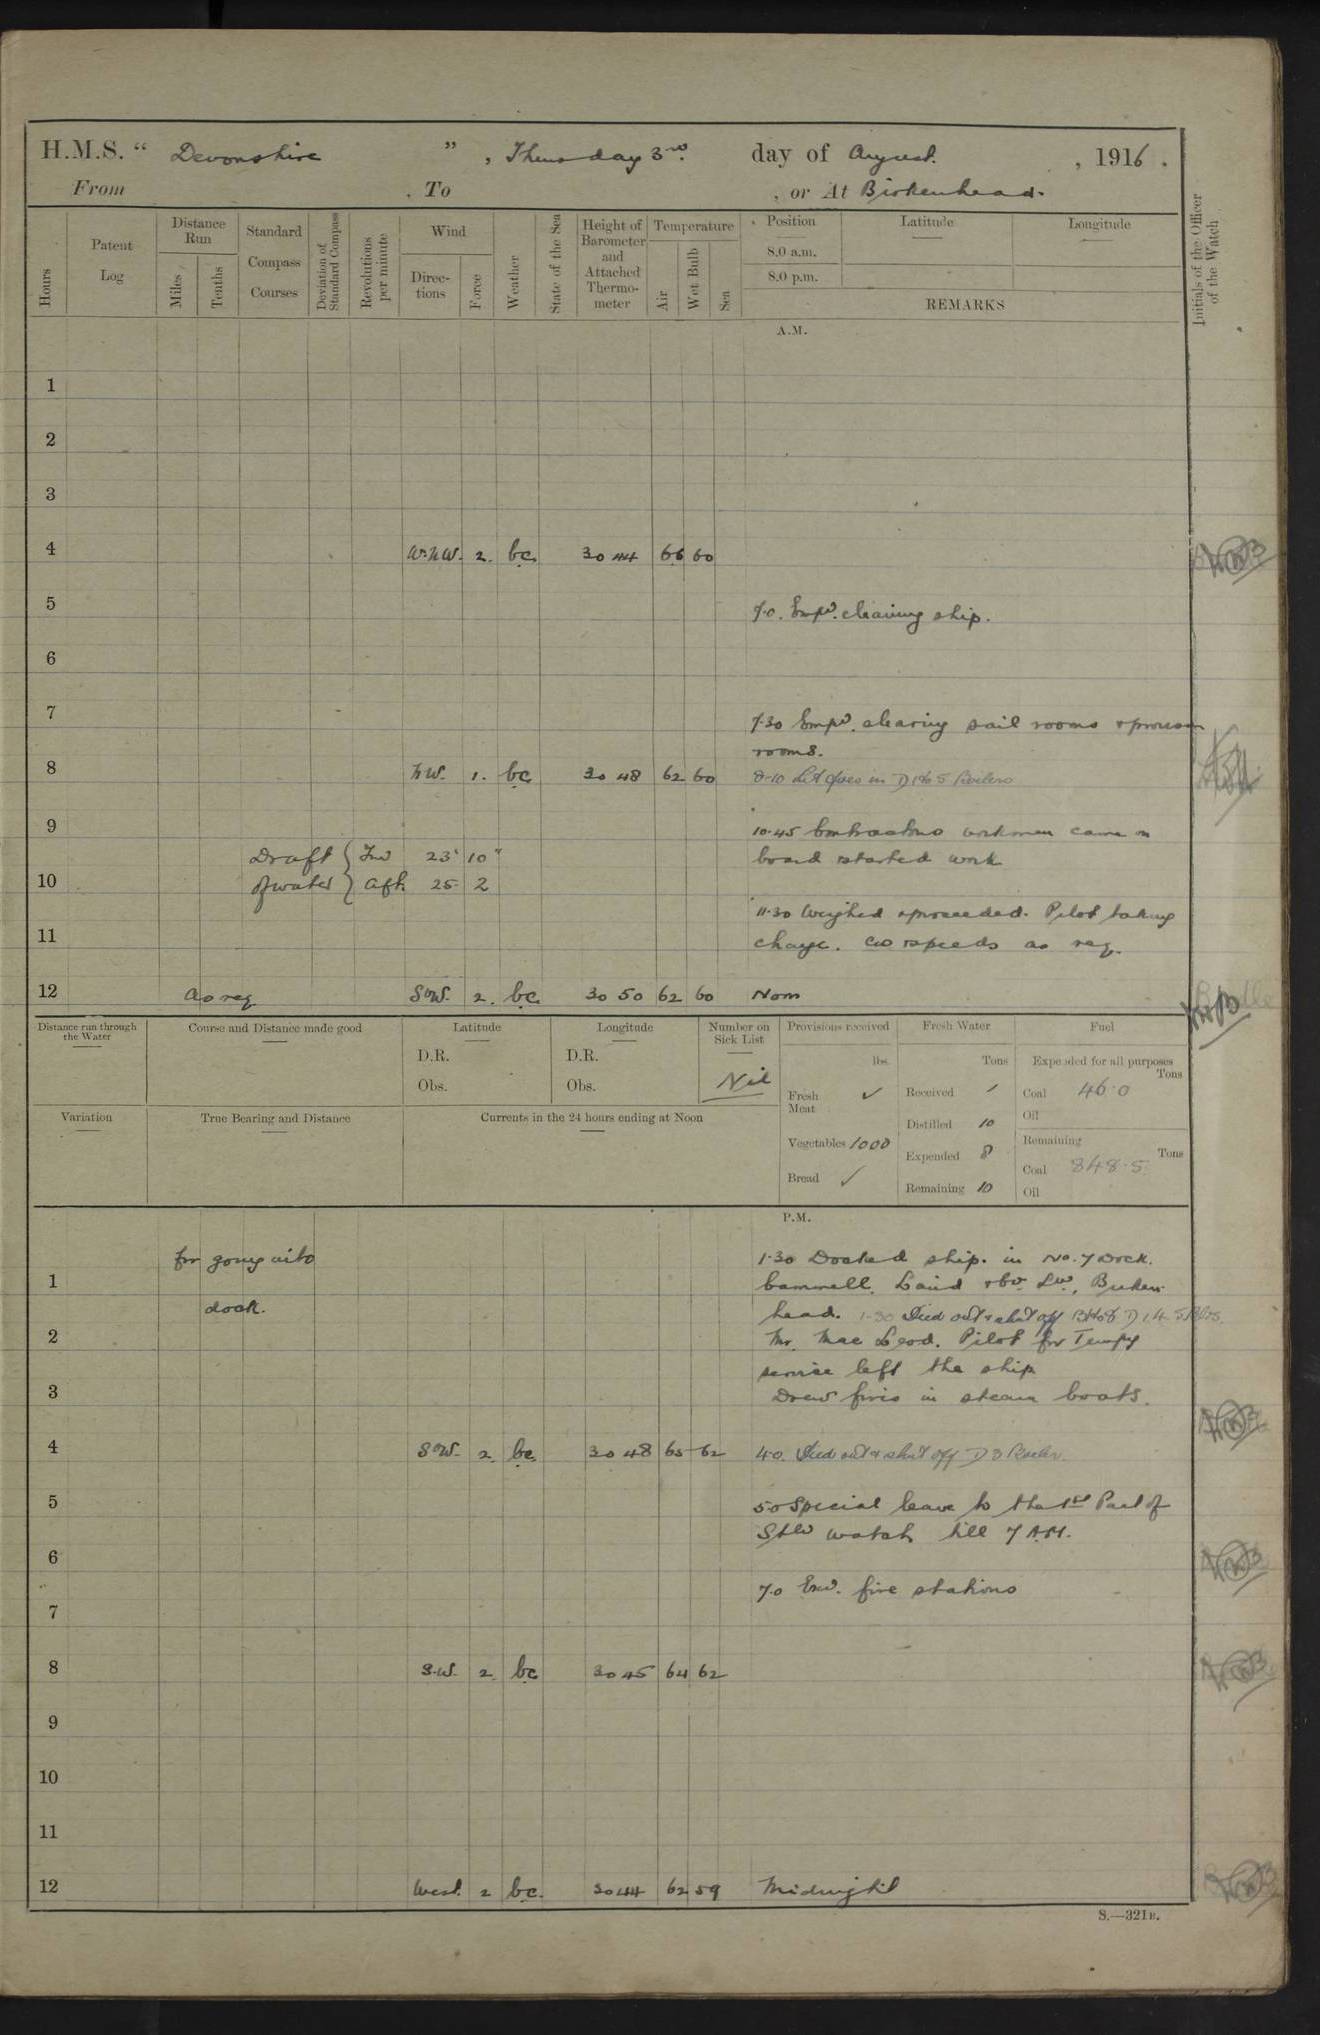 H.M.S. " Devonshire ", Thursday 3rd day of August, 1916.
From , To , or At Birkenhead.
Hours
Patent Log
Distance Run
Miles
Tenths
Standard Compass Courses
Deviation of Standard Compass
Revolutions per minute
Wind
Directions
Force
Weather
State of the Sea
Height of Barometer and Attached Thermometer
Temperature
Air
Wet Bulb
Sea
Position Latitude Longitude
8.0 a.m.
8.0 p.m.
REMARKS
Initials of the Officer of the Watch
A.M.
1
2
3
4 W.N.W. 2. bc 30 44 66 60
5 7.0. Empd. cleaning ship.
6
7 7.30 Empd. clearing sail rooms &
rooms.
8 NW. 1. bc 30 48 62 60 8-10 Lit fires in D 1 to 5 Boilers
9 10.45 Contractors workmen came on
Draft of water Fwd 23' 10" board started work
10 Aft. 25 2
11.30 Weighed & proceeded. Pilot taking
11 charge. Co & speeds as req.
12 As req SW. 2. bc. 30 50 62 60 Noon
Distance run through the Water
Course and Distance made good
Latitude
D.R.
Obs.
Longitude
D.R.
Obs.
Number on Sick List
Nil
Provisions received
lbs.
Fresh Meat ✓
Vegetables 1000
Bread ✓
Fresh Water
Tons
Received /
Distilled 10
Expended 8
Remaining 10
Fuel
Expended for all purposes
Tons
Coal 46.0
Oil
Remaining
Tons
Coal 848.5
Oil
Variation
True Bearing and Distance
Currents in the 24 hours ending at Noon
P.M.
for going into 1.30 Docked ship. in No. 7 Dock.
1 Cammell, Laird & Co. Ld., Birken-
dock. head. 1-30 Died out & shut off D 1 4 5 Blrs.
2 Mr. Mac Leod. Pilot for Tempy
service left the ship
3 Drew fires in steam boats.
4 SW. 2. bc 30 48 65 62 4.0. Died out & shut off D 3 Boiler.
5 5.0 Special leave to the 1st Part of
Stbd watch till 7 A.M.
6
7.0 Exd. fire stations
7
8 S.W. 2. bc 30 45 64 62
9
10
11
12 West. 2 bc. 30 44 62 59 Midnight
S.—321B.